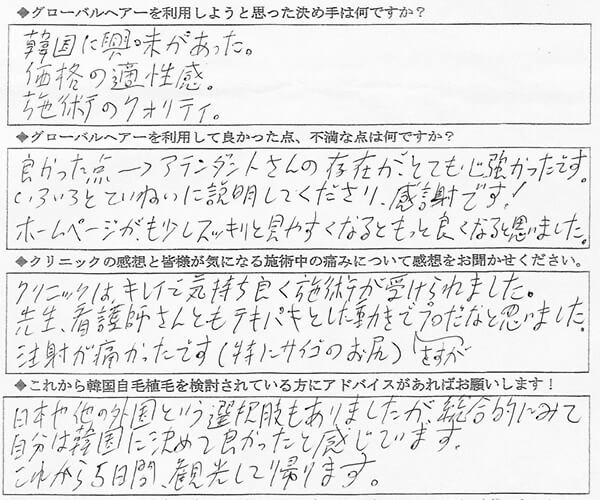 ◆グローバルヘアーを利用しようと思った決め手は何ですか？
韓国に興味があった。
価格の適性感。
施術のクオリティ。
◆グローバルヘアーを利用して良かった点、不満な点は何ですか？
良かった点→アテンダントさんの存在が、とても心強かったです。
いろいろとていねいに説明してくださり、感謝です！
ホームページが、もう少しスッキリと見やすくなるともっと良くなると思いました。
◆クリニックの感想と皆様が気になる施術中の痛みについて感想をお聞かせください。
クリニックは、キレイで気持ち良く施術が受けられました。
先生、看護師さんともテキパキとした動きでプロだなと思いました。
注射が痛かったです（特にサイゴのお尻） さすが
◆これから韓国自毛植毛を検討されている方にアドバイスがあればお願いします！
日本や他の外国という選択肢もありましたが、総合的にみて
自分は韓国に決めて良かったと感じています。
これから5日間、観光して帰ります。